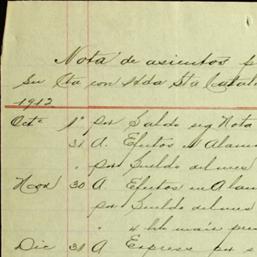 Nota de asientos p
Su Cta con Hda Sta Catal
1912
Octe 1º por Saldo seg Nota
31 A. Efectos en Alam
" por Sueldo del mes
Nov 30 A Efectos en Alam
por Sueldo del mes
" 4 hh maiz
Dic 31 A Express por s